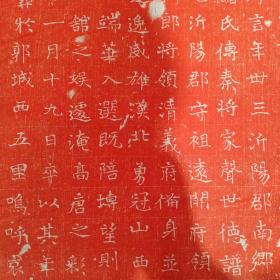 言年卅三沂陽郡南鄉
氏傳秦將家聲世德譜
沂陽郡守祖遠開府領
郎將領清義府俻身並
逸威雄漢北勇冠山西
端華入選既陪望則
舘之娱遽淹高唐之彩
一月十九日卒以其年
於郭城西五里嗚呼哀